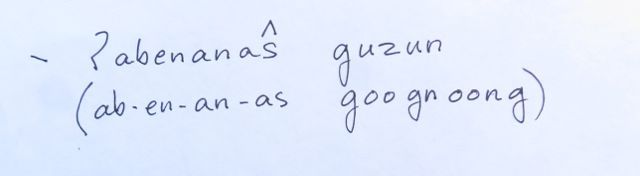 - ʔabenanaŝ guzun
(ab-en-an-as goognoong)